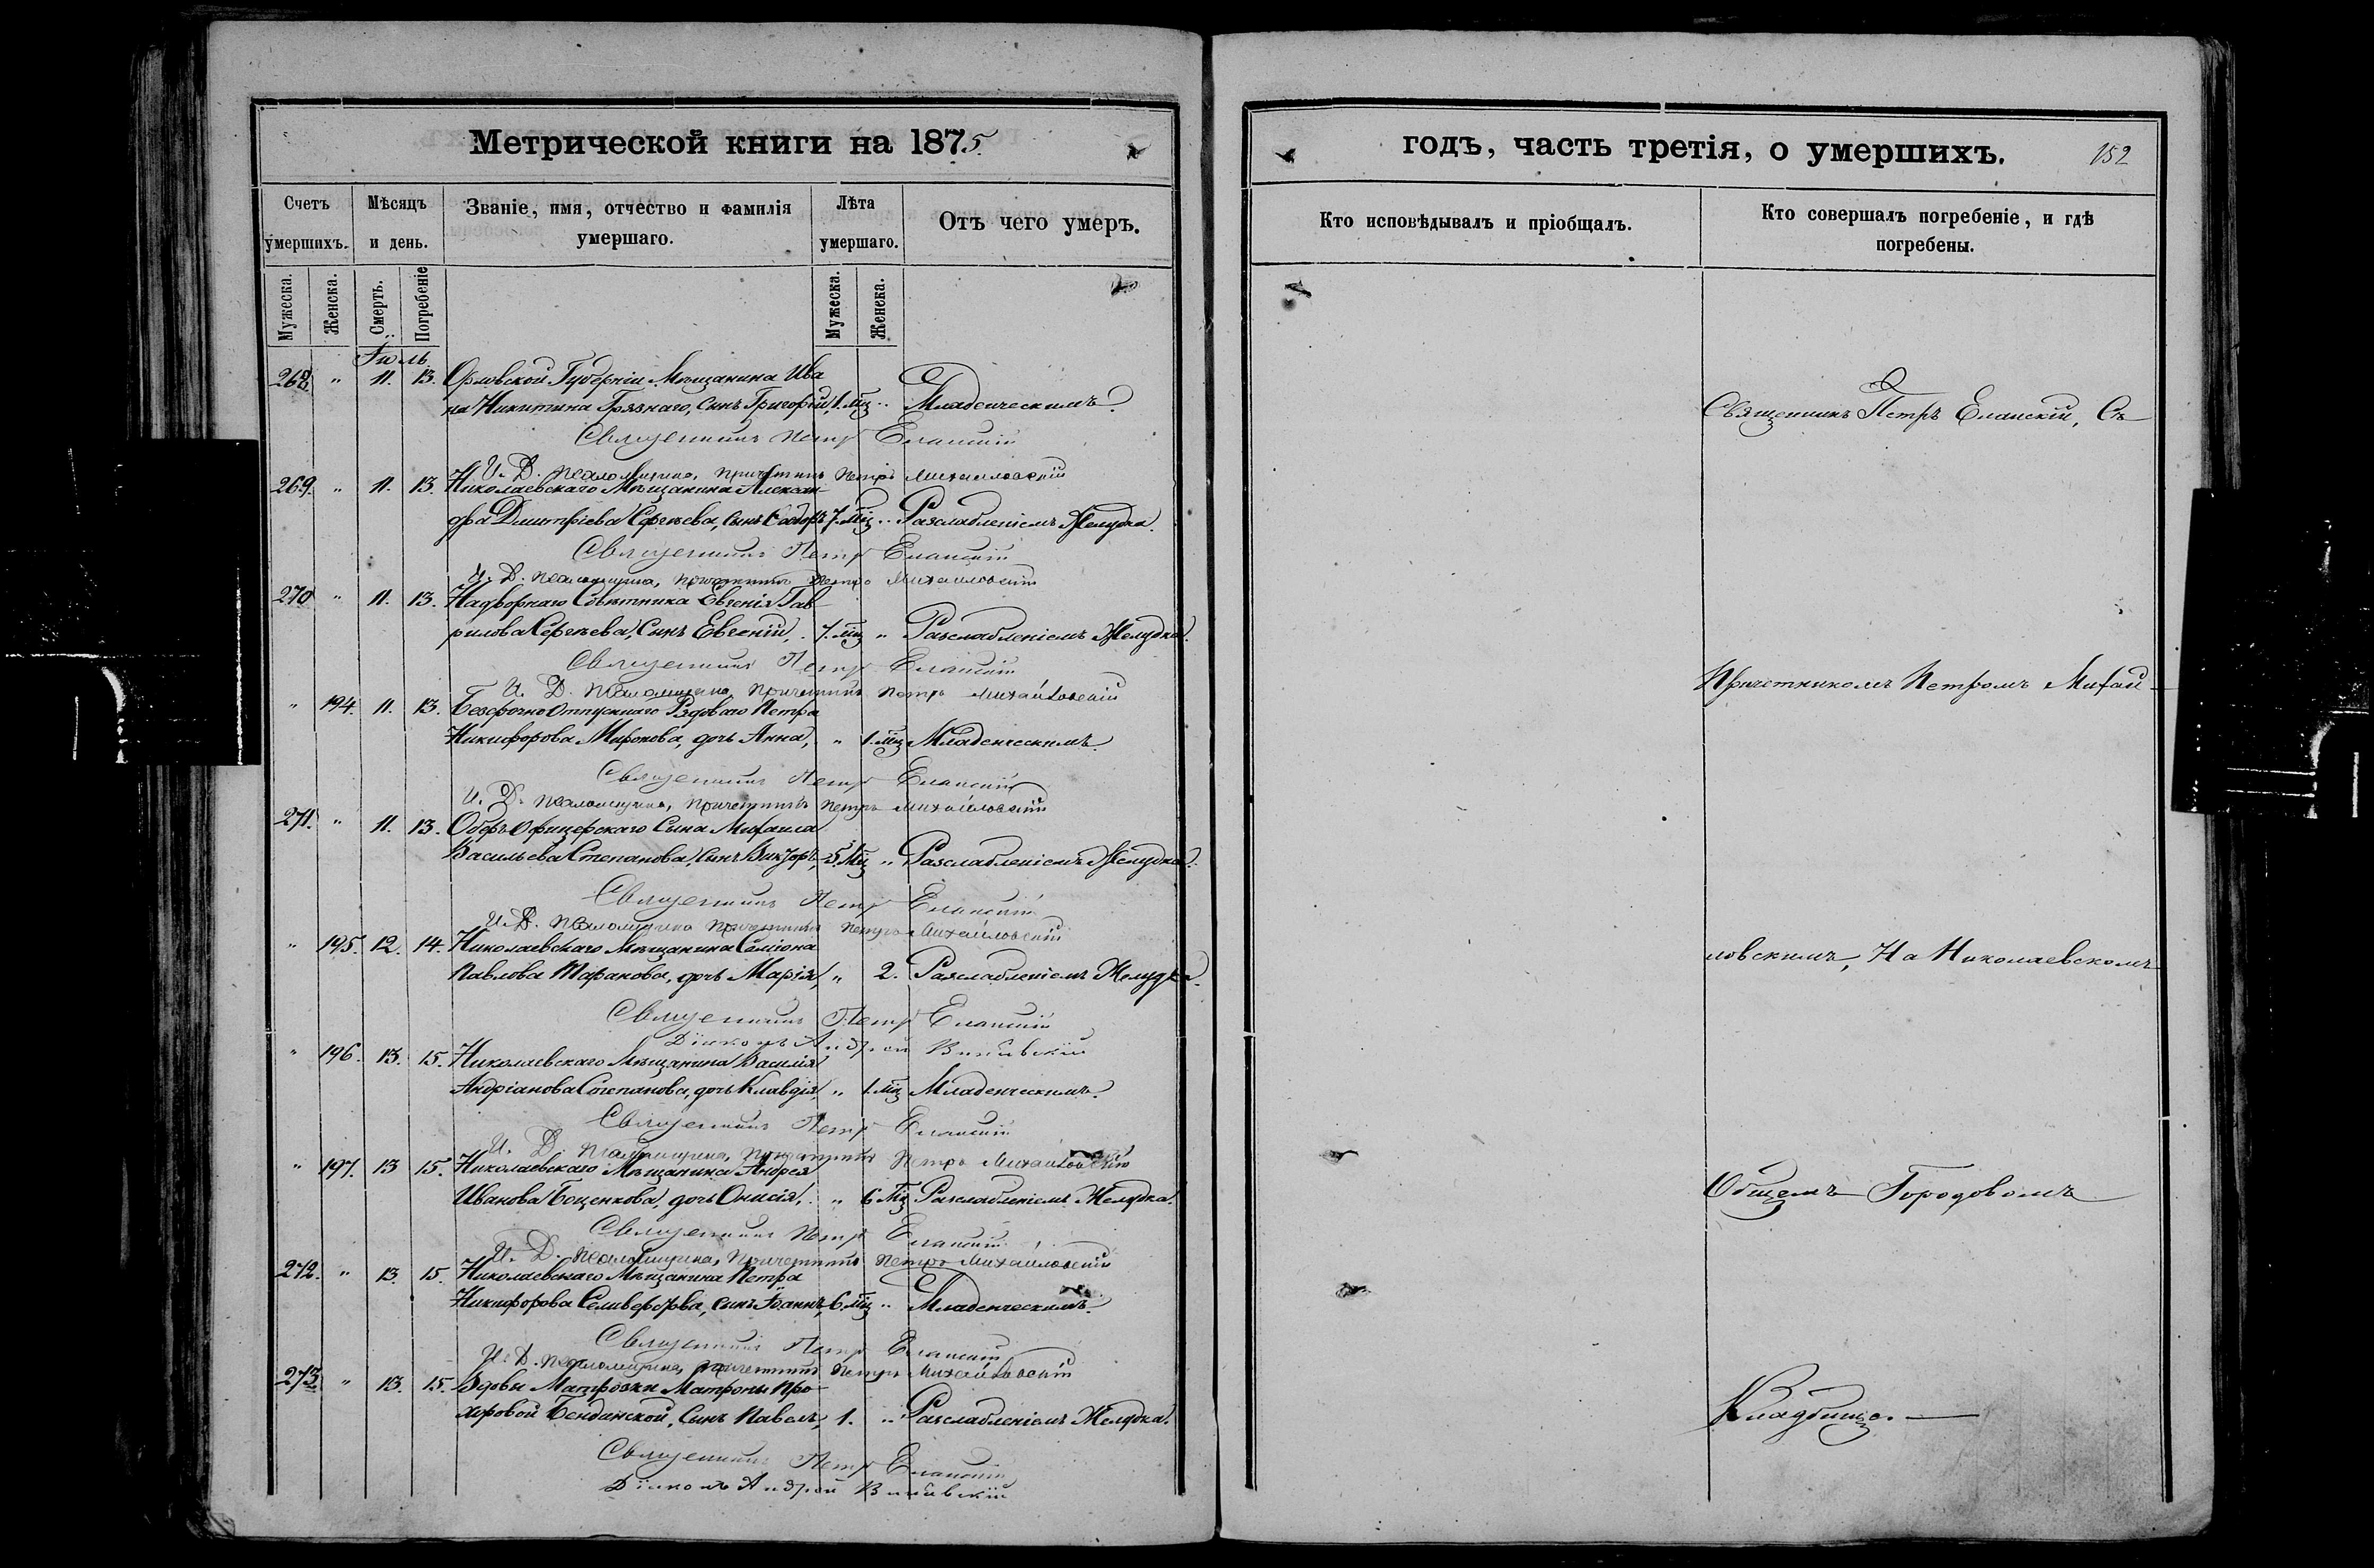 Метрической книги на 1875
Счетъ умершихъ.
Мѣсяцъ и день.
Званіе, имя, отчество и фамилія умершаго.
Лѣта умершаго.
Отъ чего умеръ.
Мужеска.
Женска.
Смерть.
Погребеніе
Мужеска.
Женска.
Іюль
268. " 11. 13. Орловской Губерніи Мѣщанина Ива
на Никитина Грязнаго, сынъ Григорій 1. мц " Младенческимъ.
Священникъ Петръ Еланскій
И. Д. псаломщика, причетникъ Петръ Михайловскій
269. " 11. 13. Николаевскаго Мѣщанина Алексан
дра Дмитріева Сергѣева, сынъ 7. мц " Разслабленіемъ Желудка.
Священникъ Петръ Еланскій
И. Д. псаломщика, причетникъ Петръ Михайловскій
270 " 11. 13. Надворнаго Совѣтника Евгенія Гав
рилова Сергѣева, Сынъ Евгеній, 7. мц " Разслабленіемъ Желудка.
Священникъ Петръ Еланскій
И. Д. псаломщика, причетникъ Петръ Михайловскій
" 194. 11. 13. Безсрочно Отпускнаго Рядоваго Петра
Никифорова Миронова, дочь Анна, " 1. мц Младенческимъ.
Священникъ Петръ Еланскій
И. Д. псаломщика, причетникъ Петръ Михайловскій
271. " 11. 13. Оберъ Офицерскаго Сына Михаила
Васильева Степанова, сынъ Викторъ, 5. мц " Разслабленіемъ Желудка.
Священникъ Петръ Еланскій
И. Д. псаломщика причетникъ Петръ Михайловскій
" 195. 12. 14. Николаевскаго Мѣщанина Семіона
Павлова Таранова, дочь Марія, " 2. Разслабленіемъ Желудка.
Священникъ Петръ Еланскій
Діаконъ Андрей
" 196. 13. 15. Николаевскаго Мѣщанина Василія
Андріанова Степанова, дочь Клавдія " 1. мц Младенческимъ.
Священникъ Петръ Еланскій
И. Д. псаломщика, причетникъ Петръ Михайловскій
" 197. 13 15. Николаевскаго Мѣщанина Андрея
Иванова Боценкова, дочь Онисія, " 6 мц Разслабленіемъ Желудка.
Священникъ Петръ Еланскій
И. Д. псаломщика, причетникъ Петръ Михайловскій
272. " 13. 15. Николаевскаго Мѣщанина Петра
Никифорова Селиверстова, сынъ Іоаннъ, 6. мц " Младенческимъ.
Священникъ Петръ Еланскій
И. Д. псаломщика, причетникъ Петръ Михайловскій
273. " 13. 15. Вдовы Матроски Матроны Про
хоровой Бенданской, Сынъ Павелъ, 1. " Разслабленіемъ Желудка.
Священникъ Петръ Еланскій
Діаконъ Андрей
годъ, часть третія, о умершихъ.
152
Кто исповѣдывалъ и пріобщалъ.
Кто совершалъ погребеніе, и гдѣ погребены.
Священникъ Петръ Еланскій, Съ
Причетникомъ Петромъ Михай
ловскимъ, На Николаевскомъ
Общемъ Городовомъ
Кладбище.